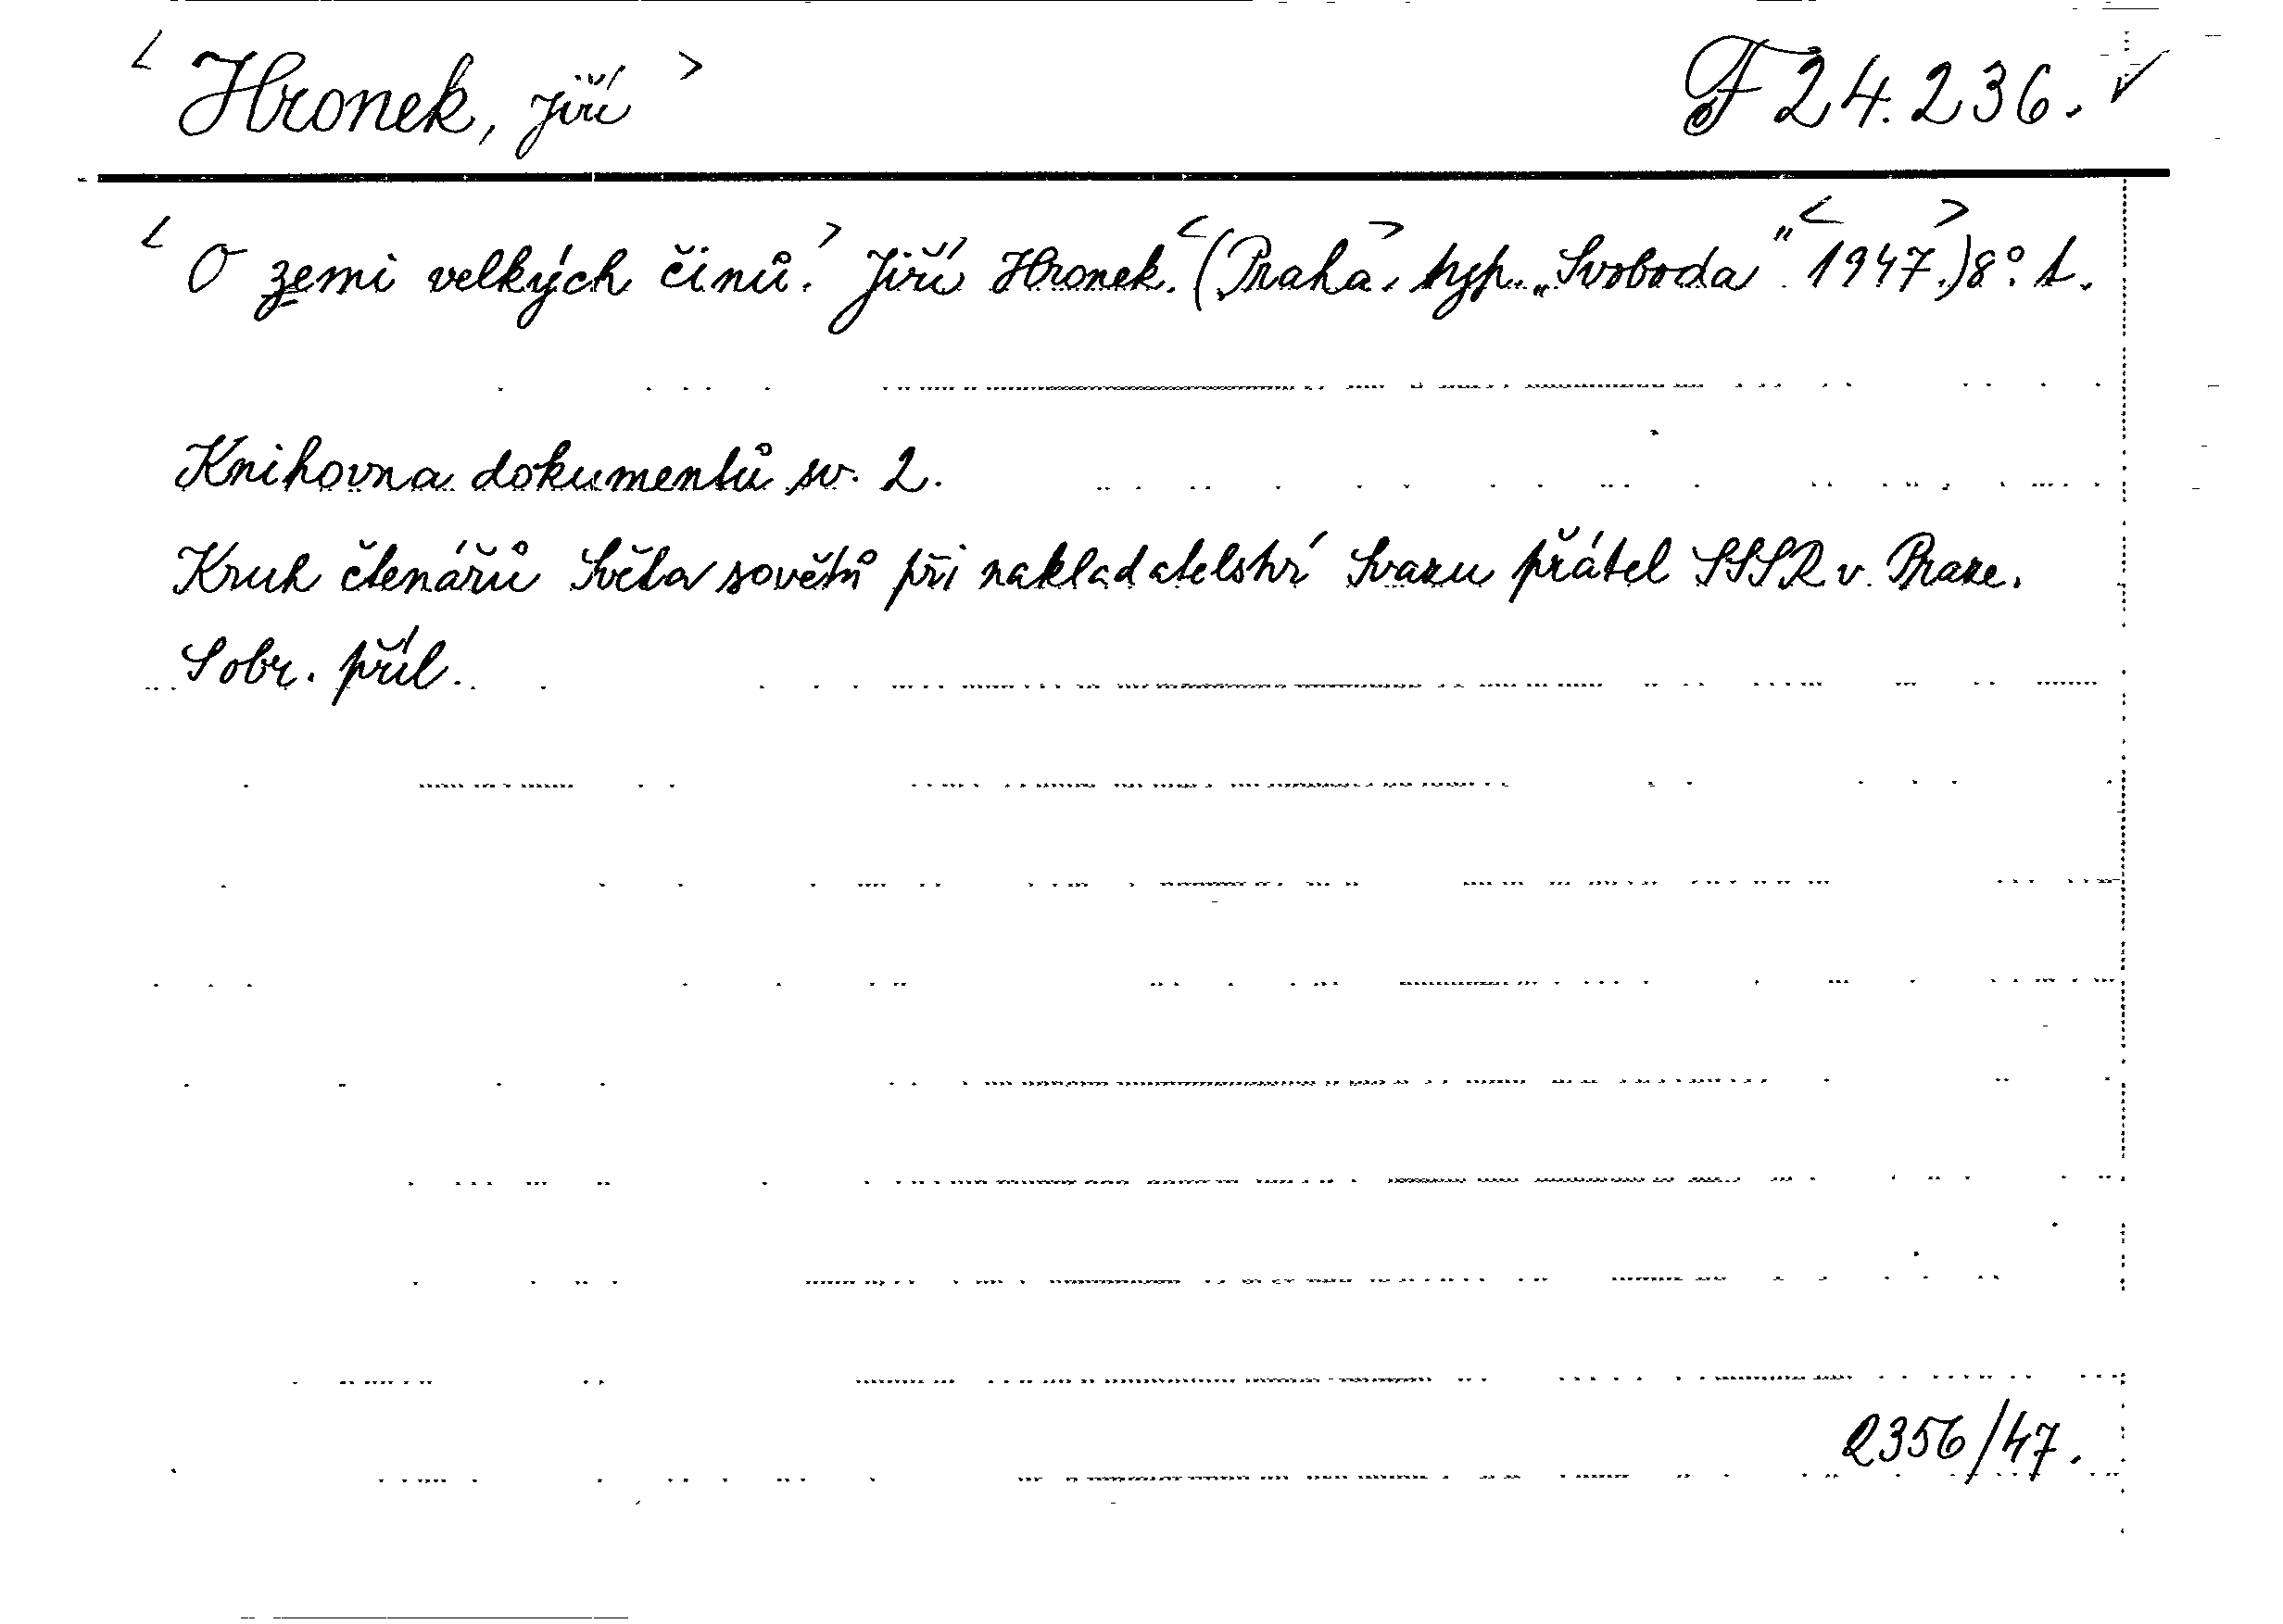 < Hronek, Jiří > F 24.236. ✓
< O zemi velkých činů. > Jiří Hronek. < (Praha, > typ. „Svoboda“ < 1947. > ) 8° t.
Knihovna dokumentů sv. 2.
Kruh čtenářů Světa sovětů při nakladatelství Svazu přátel SSSR v Praze.
S obr. příl.
2356/47.